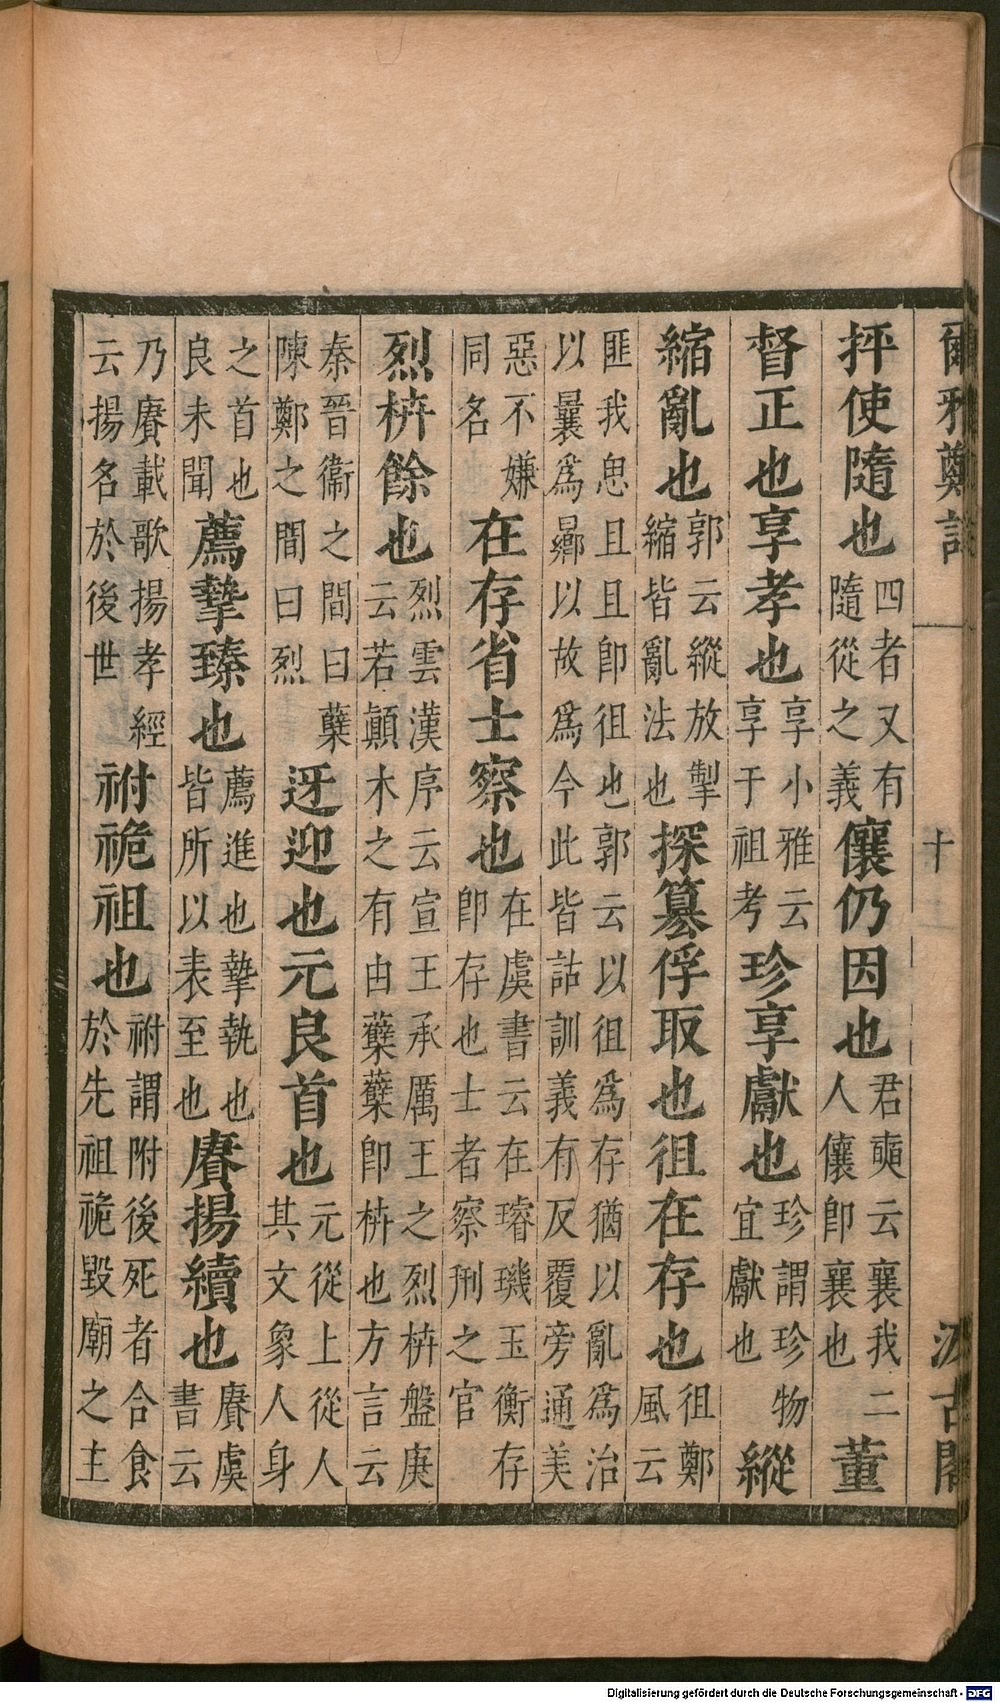 爾雅鄭註
十
汲古閣
抨使隨也
四者又有
隨從之義
儴仍因也
君奭云襄我二
人儴即襄也
董
督正也享孝也
享小雅云
享于祖考
珍享獻也
珍謂珍物
宜獻也
縱
縮亂也
郭云縱放掣
縮皆亂法也
探篡俘取也徂在存也
徂鄭
風云
匪我思且且即徂也郭云以徂為存猶以亂為治
以曩為曏以故為今此皆詁訓義有反覆旁通美
惡不嫌
同名
在存省士察也
在虞書云在璿璣玉衡存
即存也士者察刑之官
烈枿餘也
烈雲漢序云宣王承厲王之烈枿盤庚
云若顛木之有由蘗蘗即枿也方言云
秦晉衞之間曰蘗
陳鄭之間曰烈
迓迎也元良首也
元從上從人
其文象人身
之首也
良未聞
薦摯臻也
薦進也摯執也
皆所以表至也
賡揚續也
賡虞
書云
乃賡載歌揚孝經
云揚名於後世
祔祪祖也
祔謂附後死者合食
於先祖祪毀廟之主
Digitalisierung gefördert durch die Deutsche Forschungsgemeinschaft - DFG